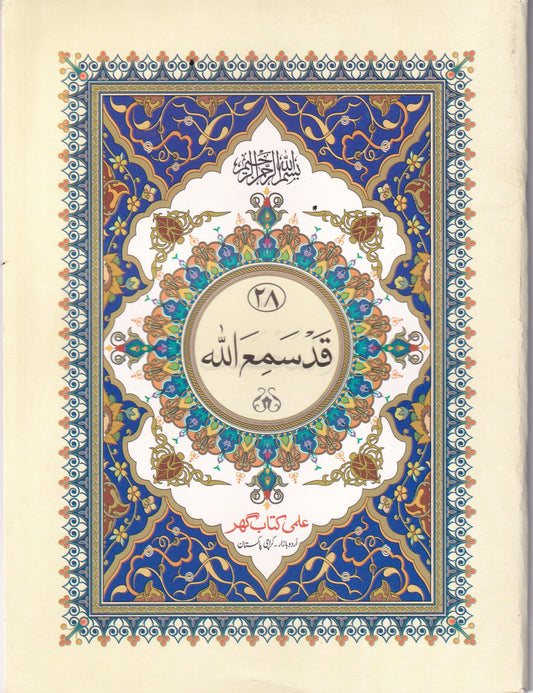 بسم الله الرحمن الرحيم
٢٨
قَدْ سَمِعَ اللّٰه
علمی کتاب گھر
اُردو بازار۔ کراچی پاکستان